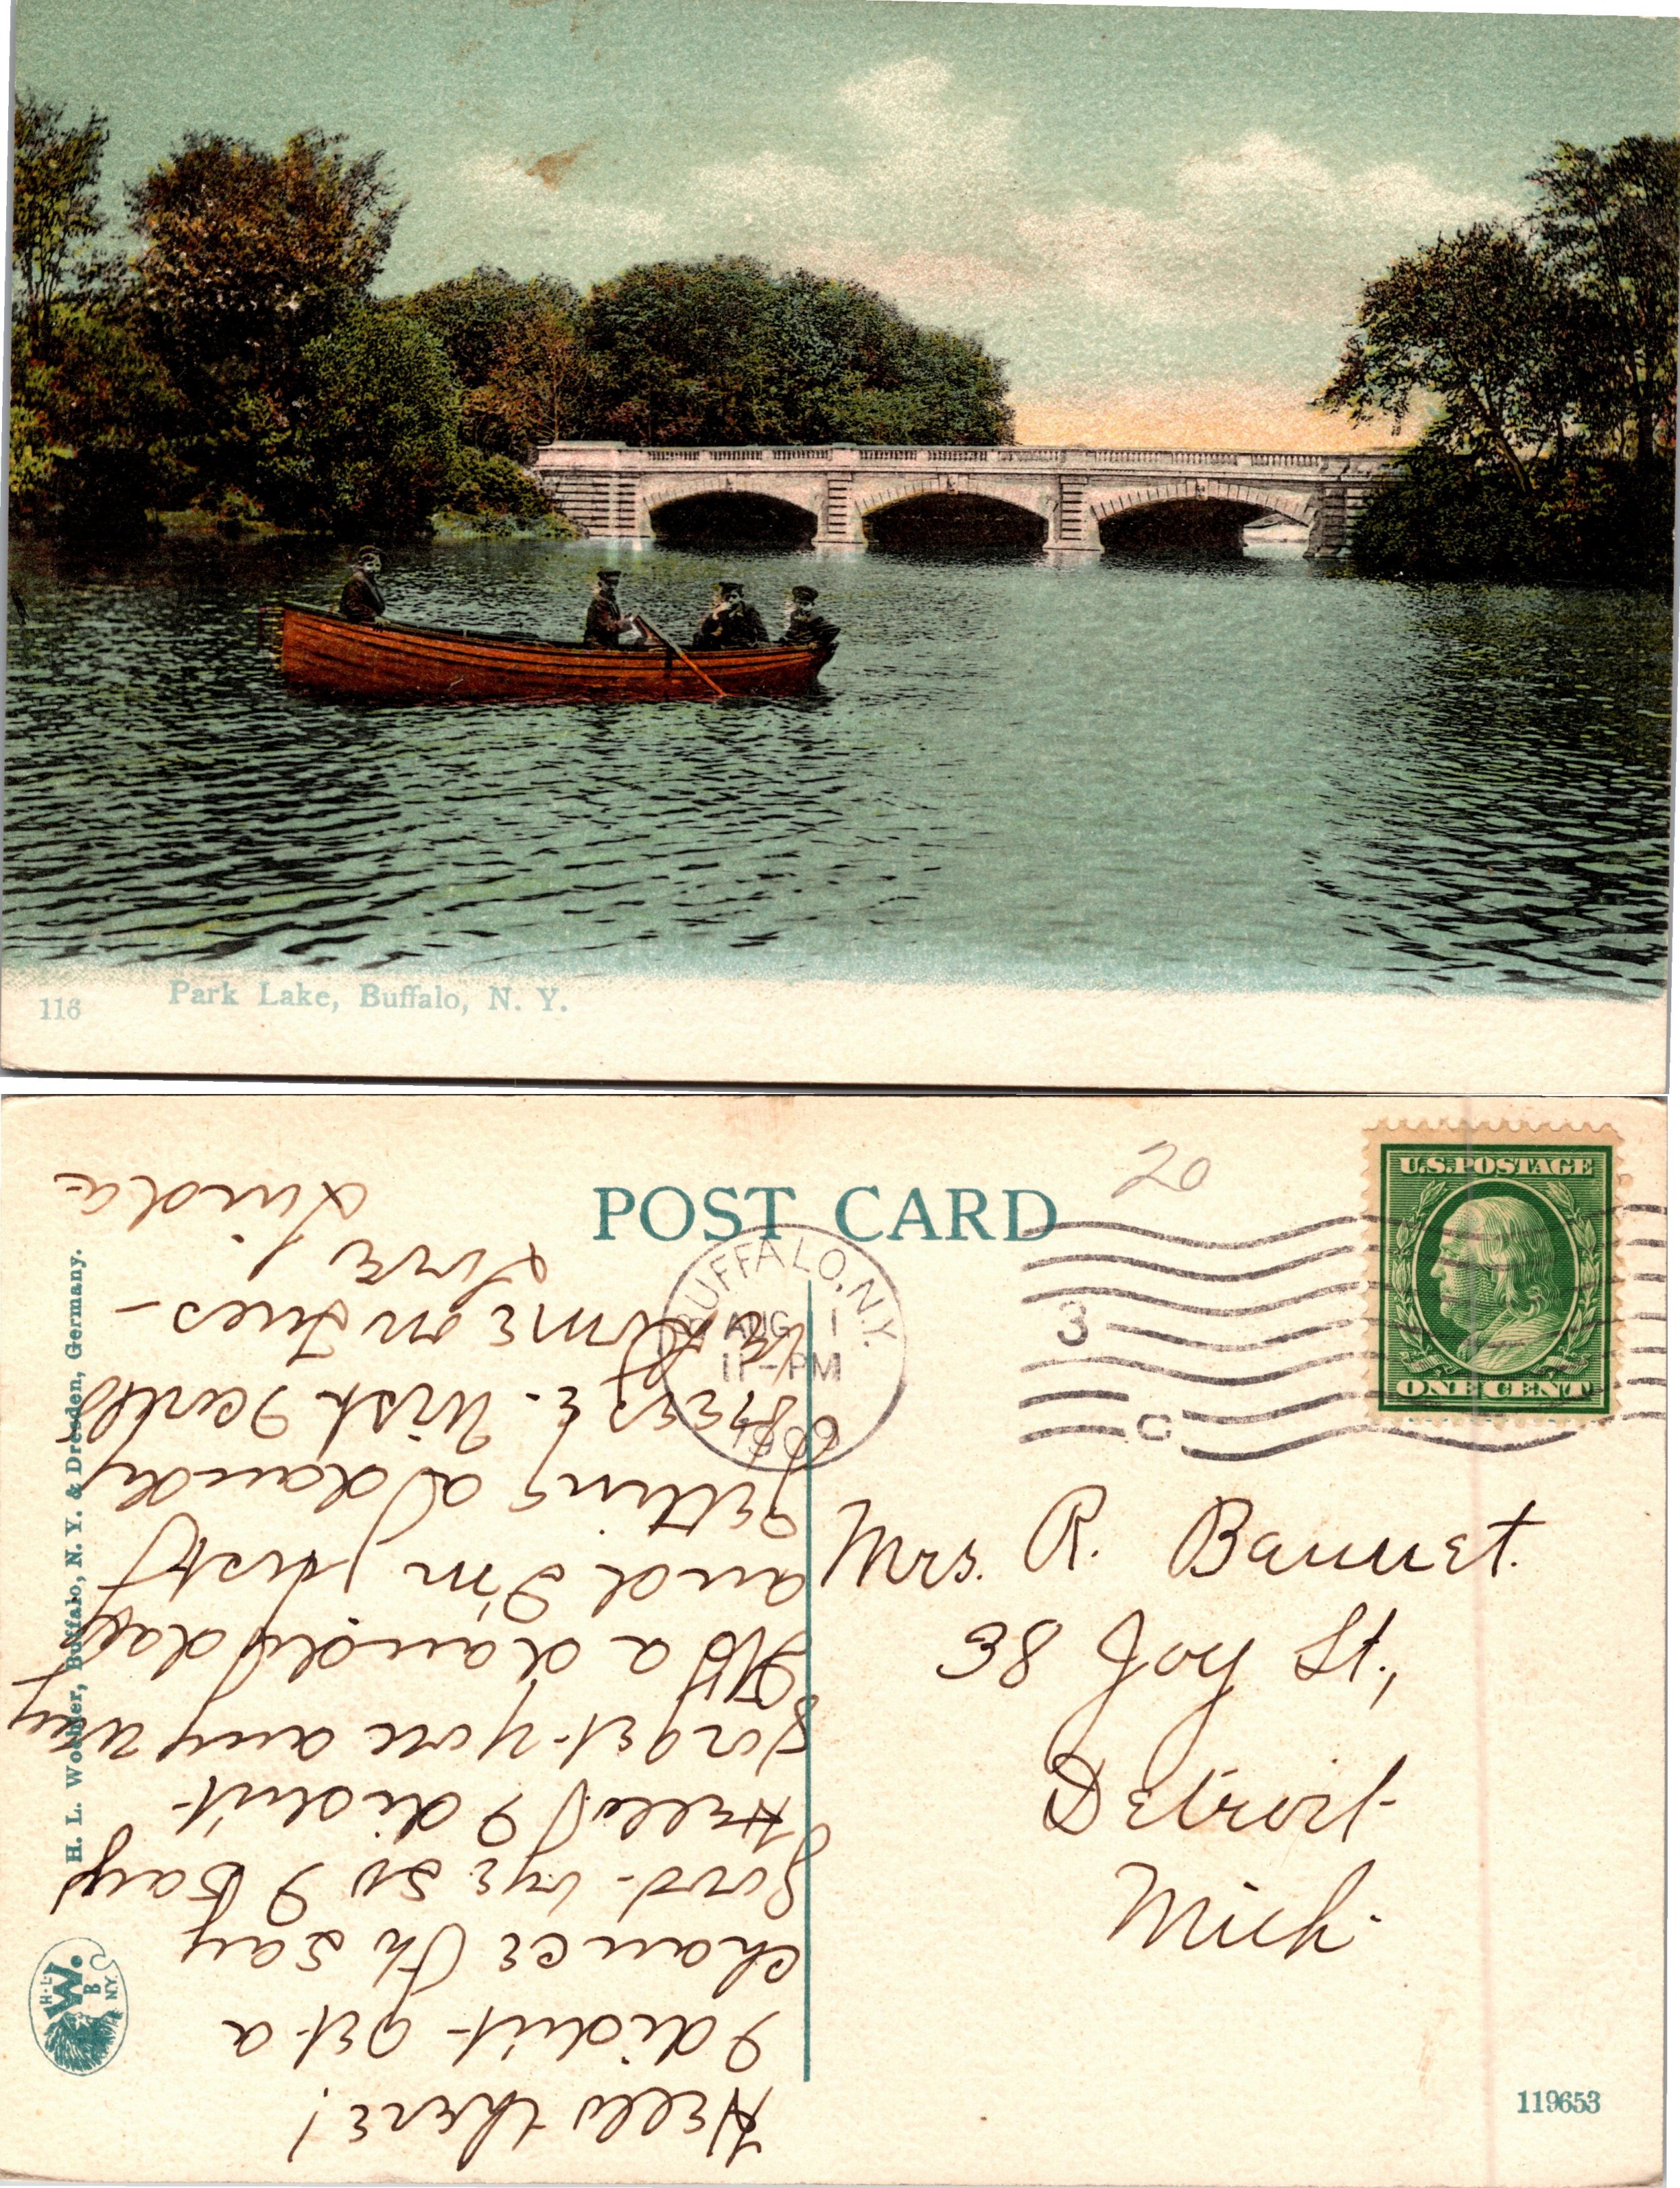 116 Park Lake, Buffalo, N. Y.
POST CARD
20
U.S. POSTAGE
ONE CENT
BUFFALO, N.Y.
AUG 1
11-PM
1909
3
C
Mrs. R. Bannet.
38 Joy St.,
Detroit
Mich.
Hello there!
I didn't get a
chance to say
good-bye so I say
Hello! I didn't
forget you any way
It's a dandy day
and I'm just
getting a dandy
breeze. Wish I could
home on Tues-
Love,
Linda
H. L. Woehler, Buffalo, N. Y. & Dresden, Germany.
H.L.
W.
B
N.Y.
119653